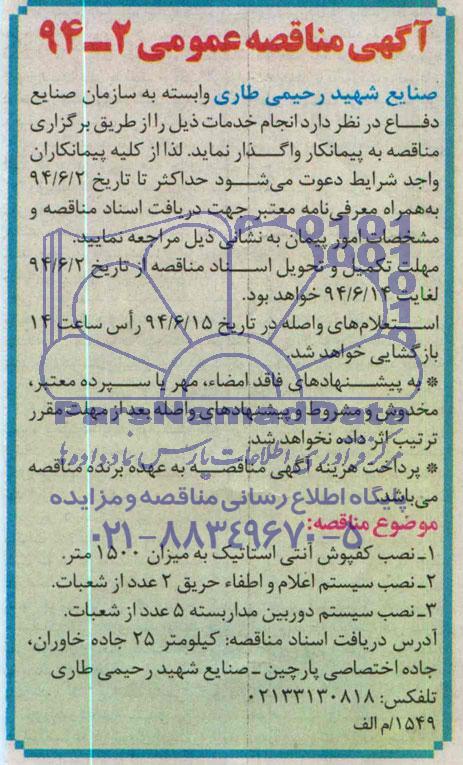 آگهی مناقصه عمومی ۲ـ۹۴
صنایع شهید رحیمی طاری وابسته به سازمان صنایع
دفــاع در نظر دارد انجام خدمات ذیل را از طریق برگزاری
مناقصه به پیمانکار واگــذار نماید. لذا از کلیه پیمانکاران
واجد شرایط دعوت می‌شــود حداکثر تا تاریخ ۹۴/۶/۲
به‌همراه معرفی‌نامه معتبر جهت دریافت اسناد مناقصه و
مشخصات امور پیمان به نشانی ذیل مراجعه نمایید.
مهلت تکمیل و تحویل اســناد مناقصه از تاریخ ۹۴/۶/۲
لغایت ۹۴/۶/۱۴ خواهد بود.
اســتعلام‌های واصله در تاریخ ۹۴/۶/۱۵ رأس ساعت ۱۴
بازگشایی خواهد شد.
* به پیشــنهادهای فاقد امضاء، مهر یا ســپرده معتبر،
مخدوش و مشروط و پیشنهادهای واصله بعد از مهلت مقرر
ترتیب اثر داده نخواهد شد.
ParsNamadData
مرکز فرآوری اطلاعات پارس نماد داده‌ها
* پرداخت هزینه آگهی مناقصــه به عهده برنده مناقصه
می‌باشد.
پایگاه اطلاع رسانی مناقصه و مزایده
موضوع مناقصه:
۰۲۱-۸۸۳۴۹۶۷۰-۵
۱ـ نصب کفپوش آنتی استاتیک به میزان ۱۵۰۰ متر.
۲ـ نصب سیستم اعلام و اطفاء حریق ۲ عدد از شعبات.
۳ـ نصب سیستم دوربین مداربسته ۵ عدد از شعبات.
آدرس دریافت اسناد مناقصه: کیلومتر ۲۵ جاده خاوران،
جاده اختصاصی پارچین ـ صنایع شهید رحیمی طاری
تلفکس: ۰۲۱۳۳۱۳۰۸۱۸
۱۵۴۹/م الف